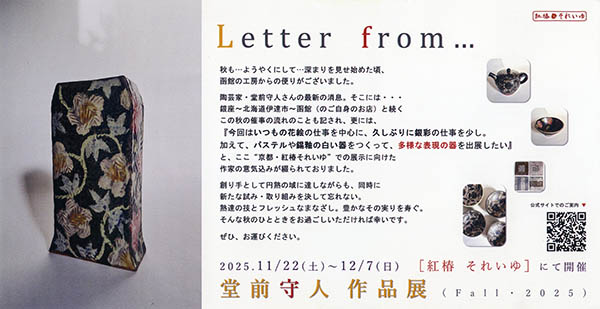 紅椿 それいゆ
Letter from…
秋も…ようやくにして…深まりを見せ始めた頃、
函館の工房からの便りがございました。
陶芸家・堂前守人さんの最新の消息。そこには・・・
銀座〜北海道伊達市〜函館（のご自身のお店）と続く
この秋の催事の流れのことも記され、更には、
『今回はいつもの花絵の仕事を中心に、久しぶりに銀彩の仕事を少し。
加えて、パステルや錫釉の白い器をつくって、多様な表現の器を出展したい』
と、ここ“京都・紅椿それいゆ”での展示に向けた
作家の意気込みが綴られておりました。
創り手として円熟の域に達しながらも、同時に
新たな試み・取り組みを決して忘れない。
熟達の技とフレッシュなまなざし。豊かなその実りを寿ぐ。
そんな秋のひとときをお過ごしいただければ幸いです。
ぜひ、お運びください。
公式サイトでのご案内 ▼
2025.11/22(土)〜12/7(日) ［紅椿 それいゆ］にて開催
堂前守人 作品展 (Fall・2025)